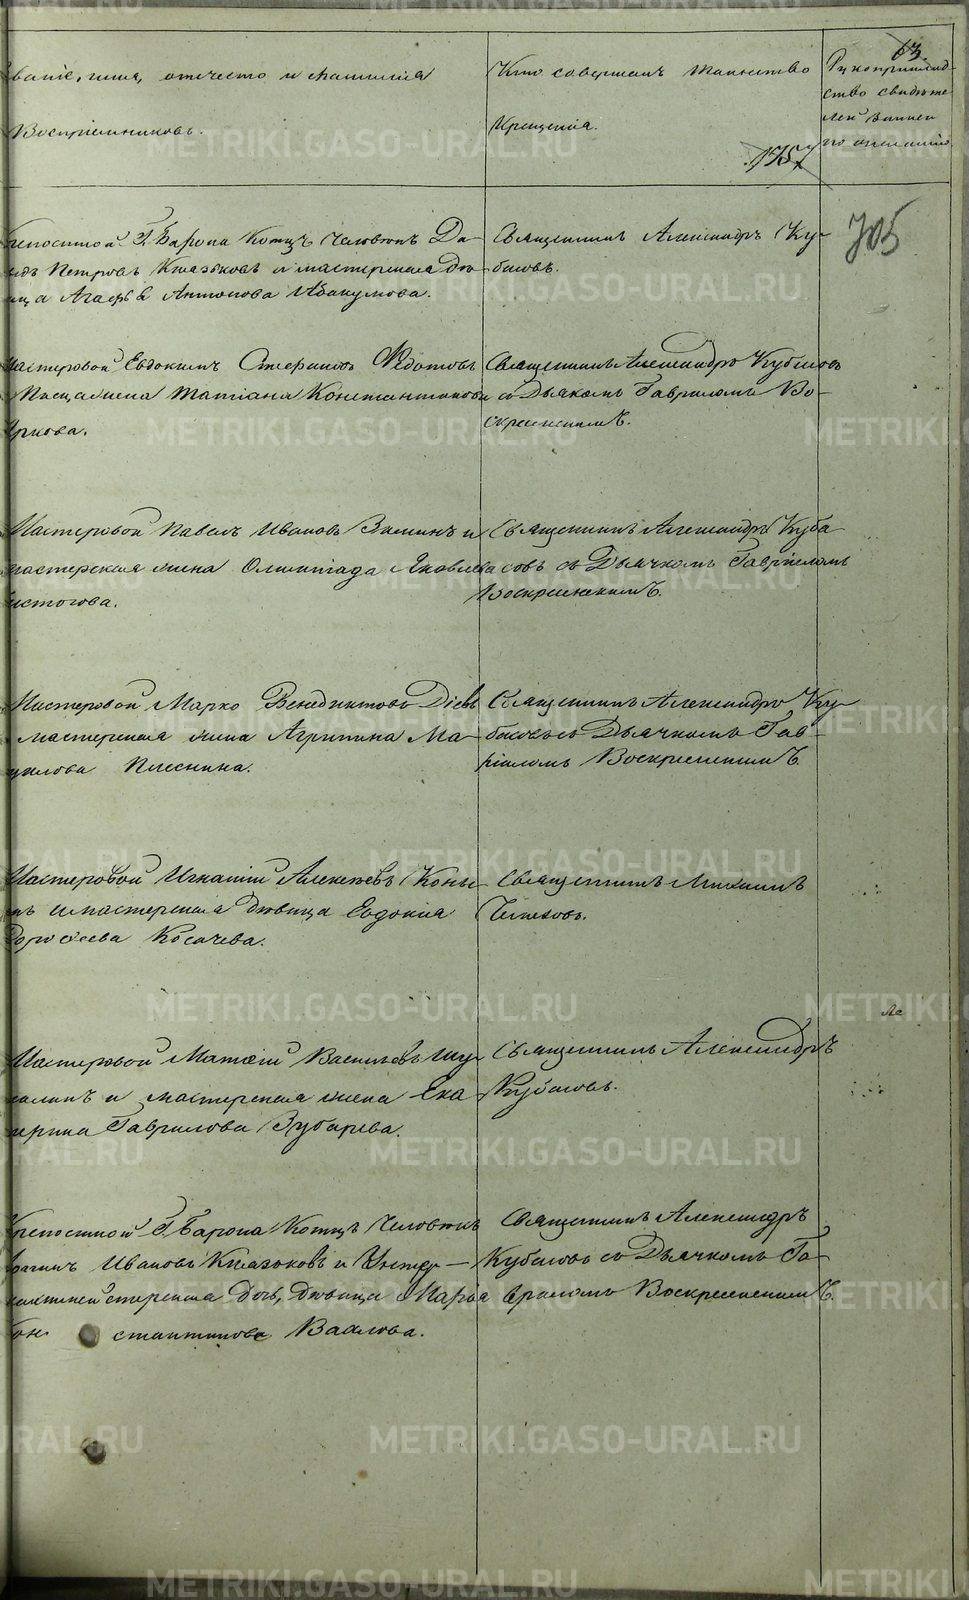 METRIKI.GASO-URAL.RU
63.
Званіе, имя, отчество и фамилія
Воспріемниковъ.
Кто совершалъ таинство
Крещенія.
Рукоприклад-
ство свидѣте
лей записи
по желанію
157
705
Крепостной Г. Барона Котцъ Человѣкъ Да-
видъ Петровъ Князьковъ и мастерская дѣ-
вица Агафья Антонова Абакумова.
Священникъ Александръ Ку-
басовъ.
Мастеровой Евдокимъ Стефановъ Федотовъ
жена Татіана Константинова
Священникъ Александръ Кубасовъ
со Дьячкомъ Гавриломъ Во-
скресенскимъ.
Мастеровой Павелъ Ивановъ Зыкинъ и
мастерская жена Олимпіада Яковлева
Священникъ Александръ Куба
совъ съ Дьячкомъ Гавріиломъ
Воскресенскимъ.
Мастеровой Марко Венедиктовъ Діевъ
мастерская жена Агрипина Ма-
нилова Плеснина.
Священникъ Александръ Ку-
басовъ со Дьячкомъ Гав-
ріиломъ Воскресенскимъ
Мастеровой Игнатій Алексѣевъ Конь-
и мастерская дѣвица Евдокія
Дорофеева Косачева.
Священникъ Михаилъ
Мастеровой Матвѣй Васильевъ Шу-
и мастерская жена Ека
терина Гаврилова Зубарева.
Священникъ Александръ
Кубасовъ.
Крепостной Г. Барона Котцъ Человѣкъ
Ивановъ Князьковъ и Унтер-
дочь, дѣвица Марья
Константинова Ваалова.
Священникъ Александръ
Кубасовъ со Дьячкомъ Га-
вриломъ Воскресенскимъ.